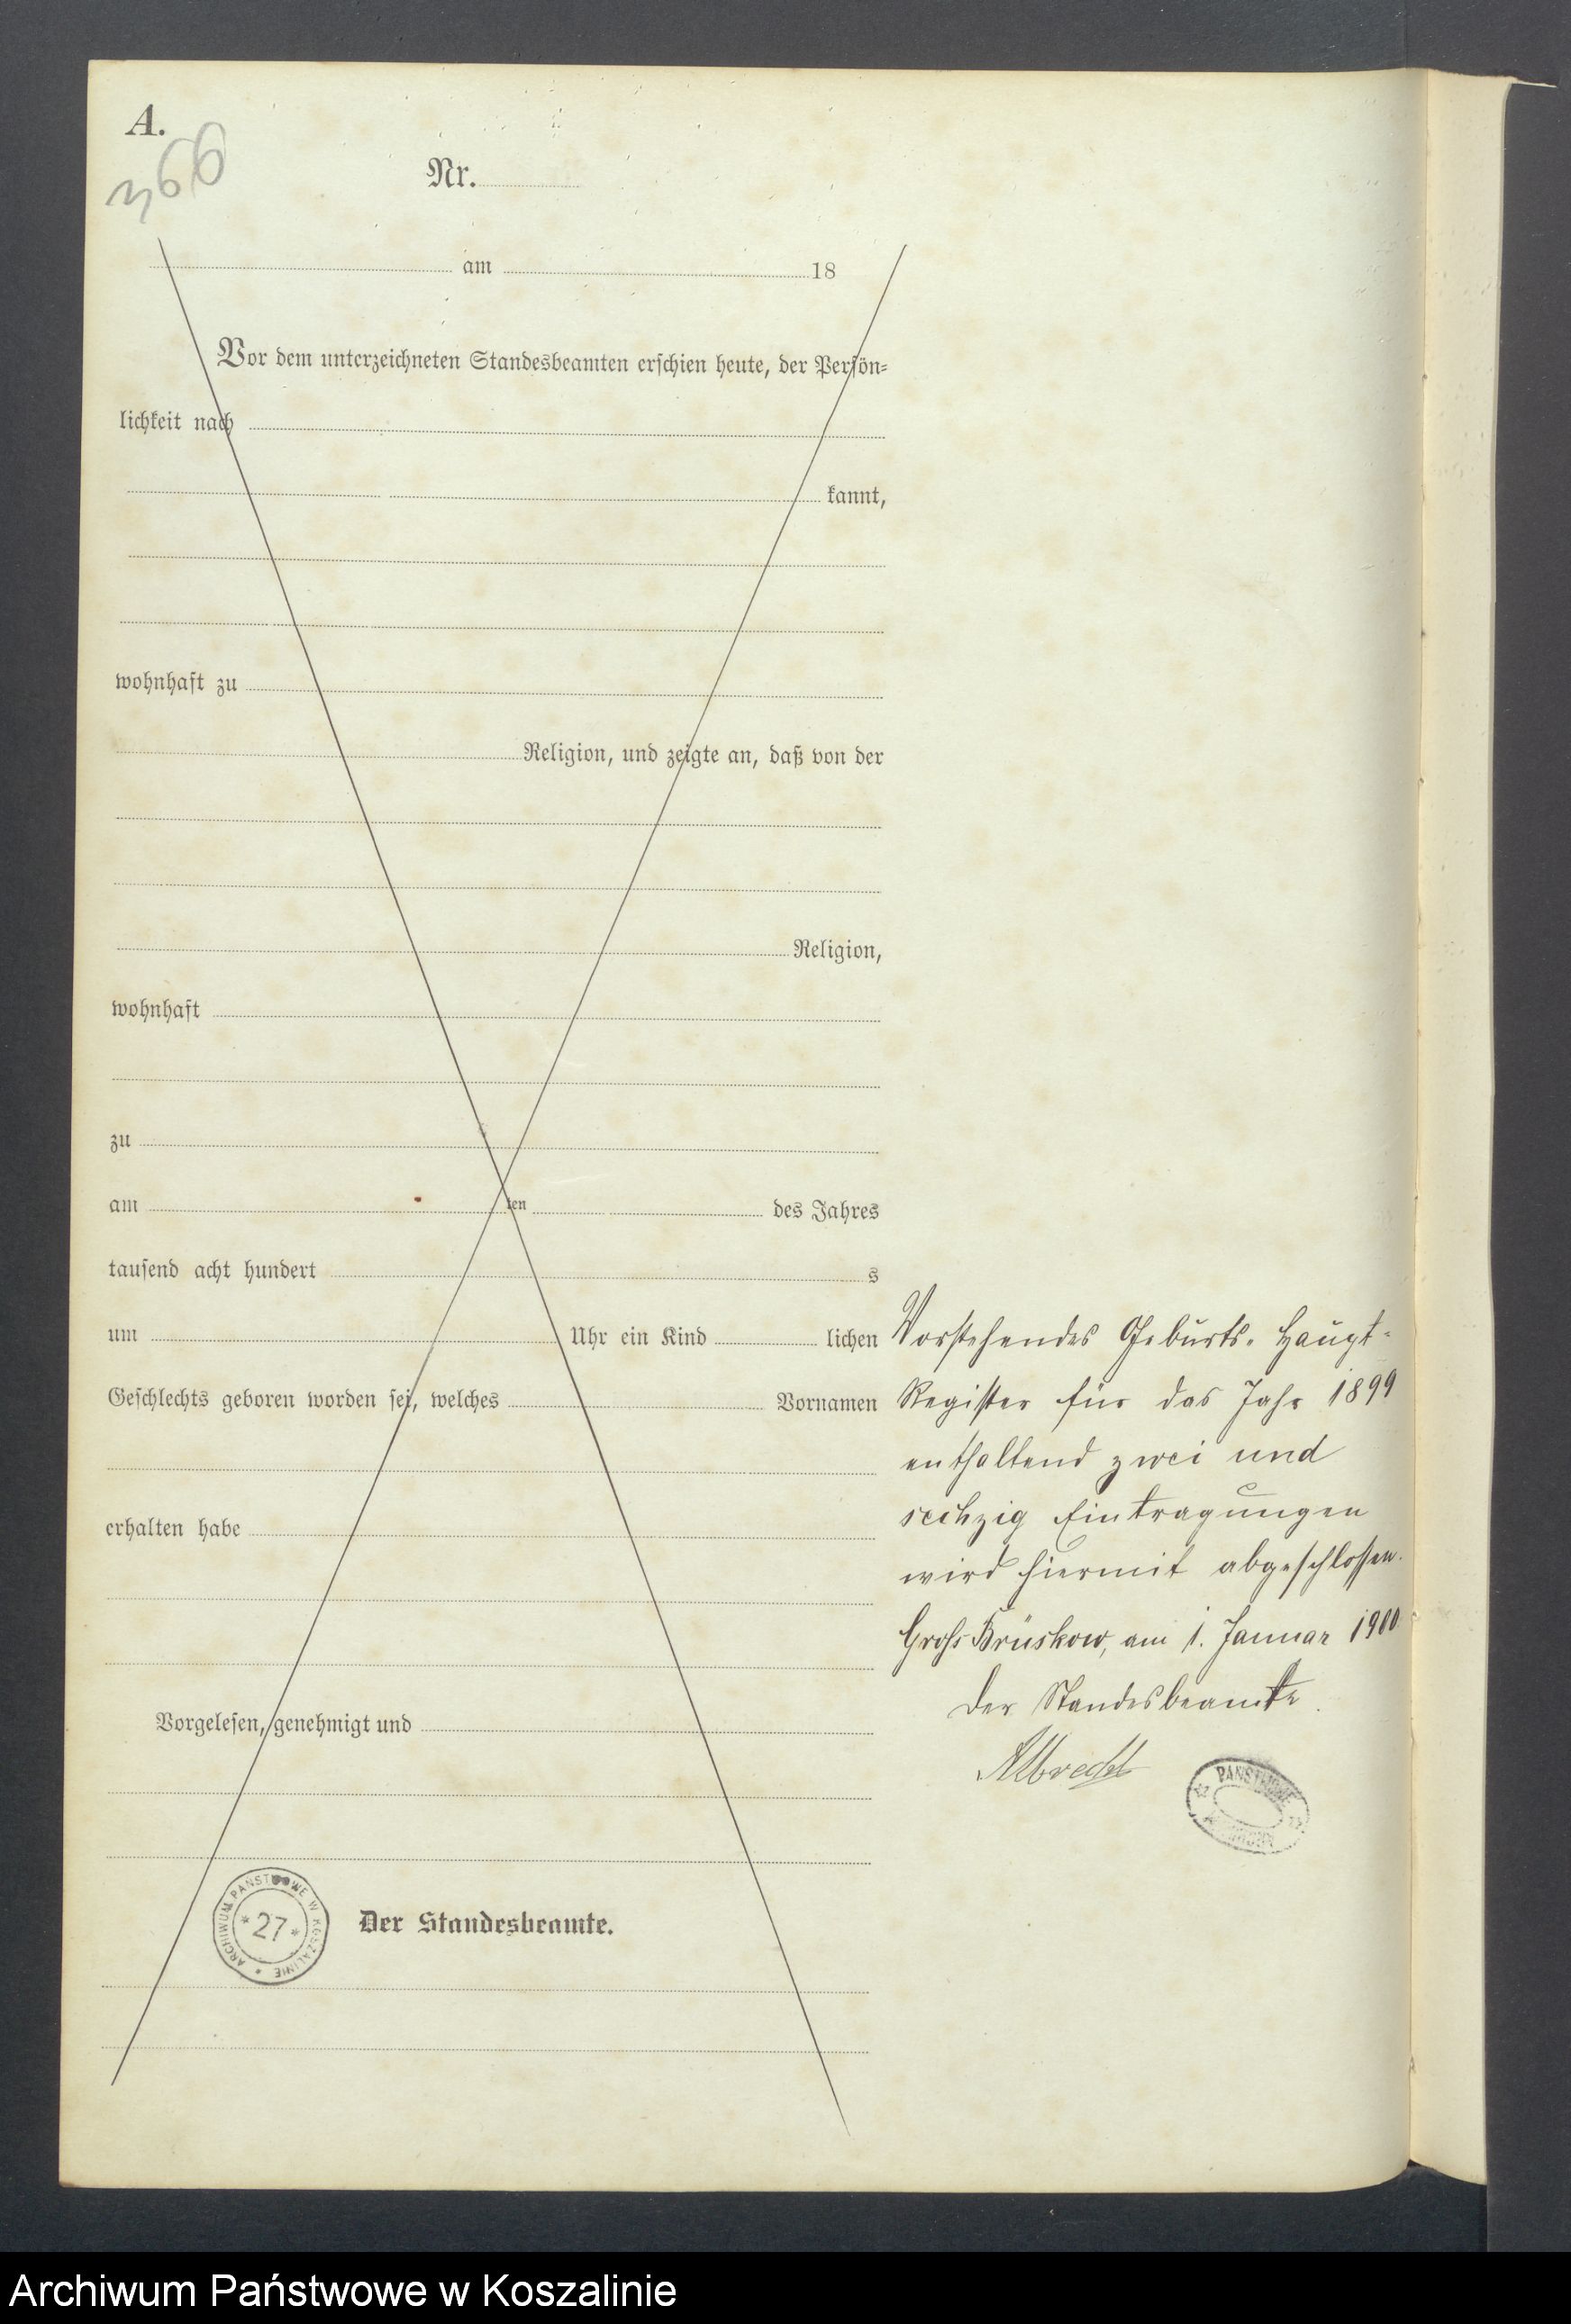 A.
366
Nr.
am 18
Vor dem unterzeichneten Standesbeamten erschien heute, der Persön-
lichkeit nach
kannt,
wohnhaft zu
Religion, und zeigte an, daß von der
Religion,
wohnhaft
zu
am ten des Jahres
tausend acht hundert s
um Uhr ein Kind lichen
Geschlechts geboren worden sei, welches Vornamen
erhalten habe
Vorgelesen, genehmigt und
Der Standesbeamte.
ARCHIWUM PAŃSTWOWE W KOSZALINIE
*27*
Vorstehendes Geburts-Haupt-
Register für das Jahr 1899
enthaltend zwei und
sechzig Eintragungen
wird hiermit abgeschlossen.
Gross Brüskow, am 1. Januar 1900
Der Standesbeamte.
Albrecht
PAŃSTWOWE
Archiwum Państwowe w Koszalinie